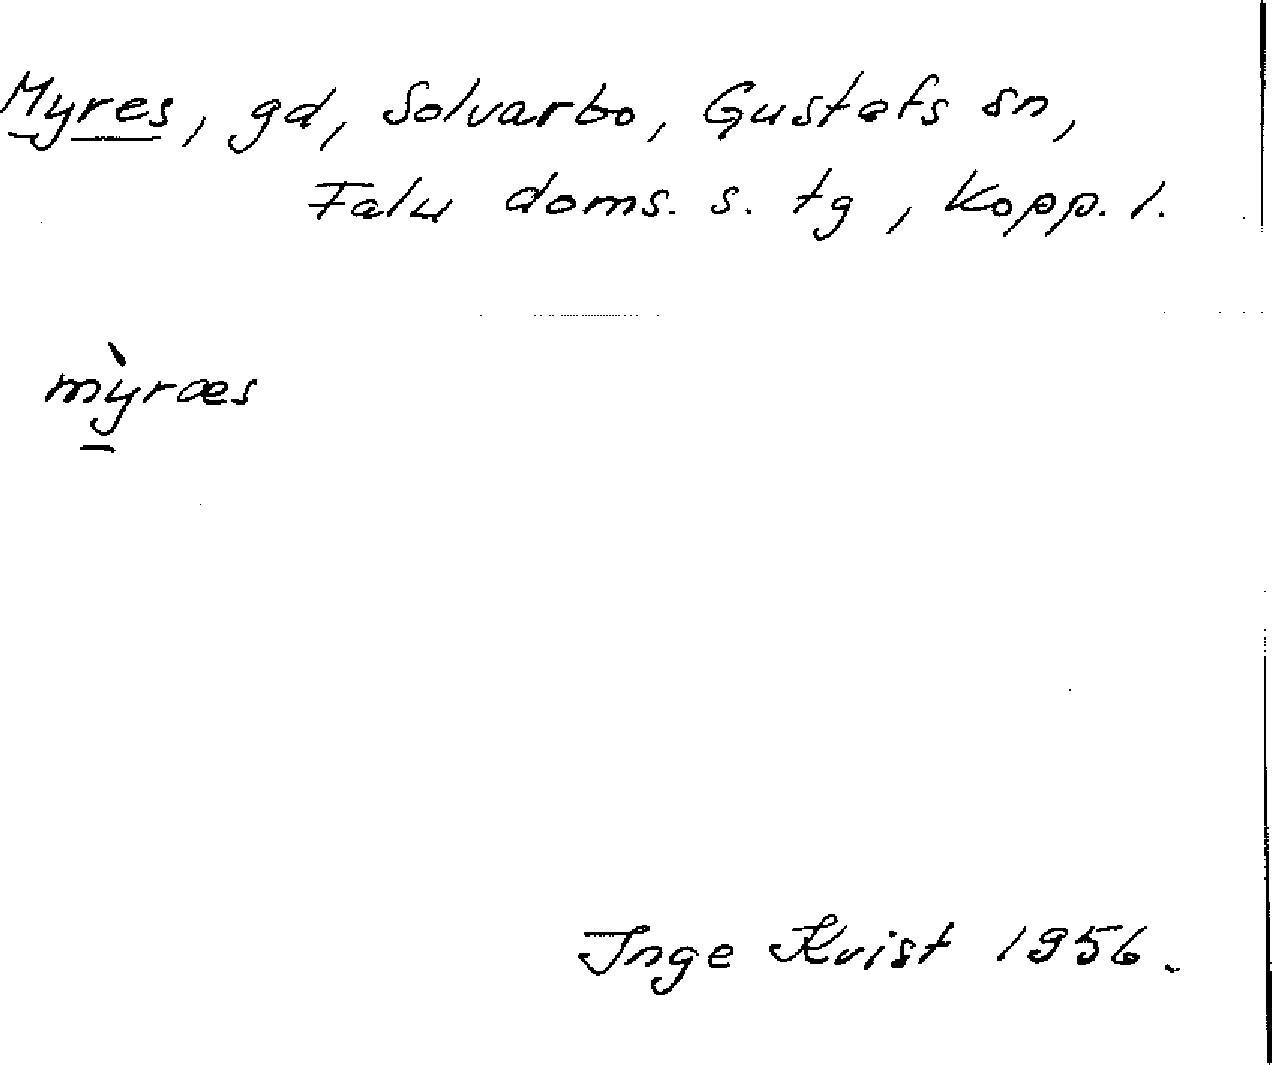 Myres, gd, Solvarbo, Gustafs sn,
Falu doms. s. tg, Kopp. l.
m̀y̠ræs
Inge Kvist 1956.